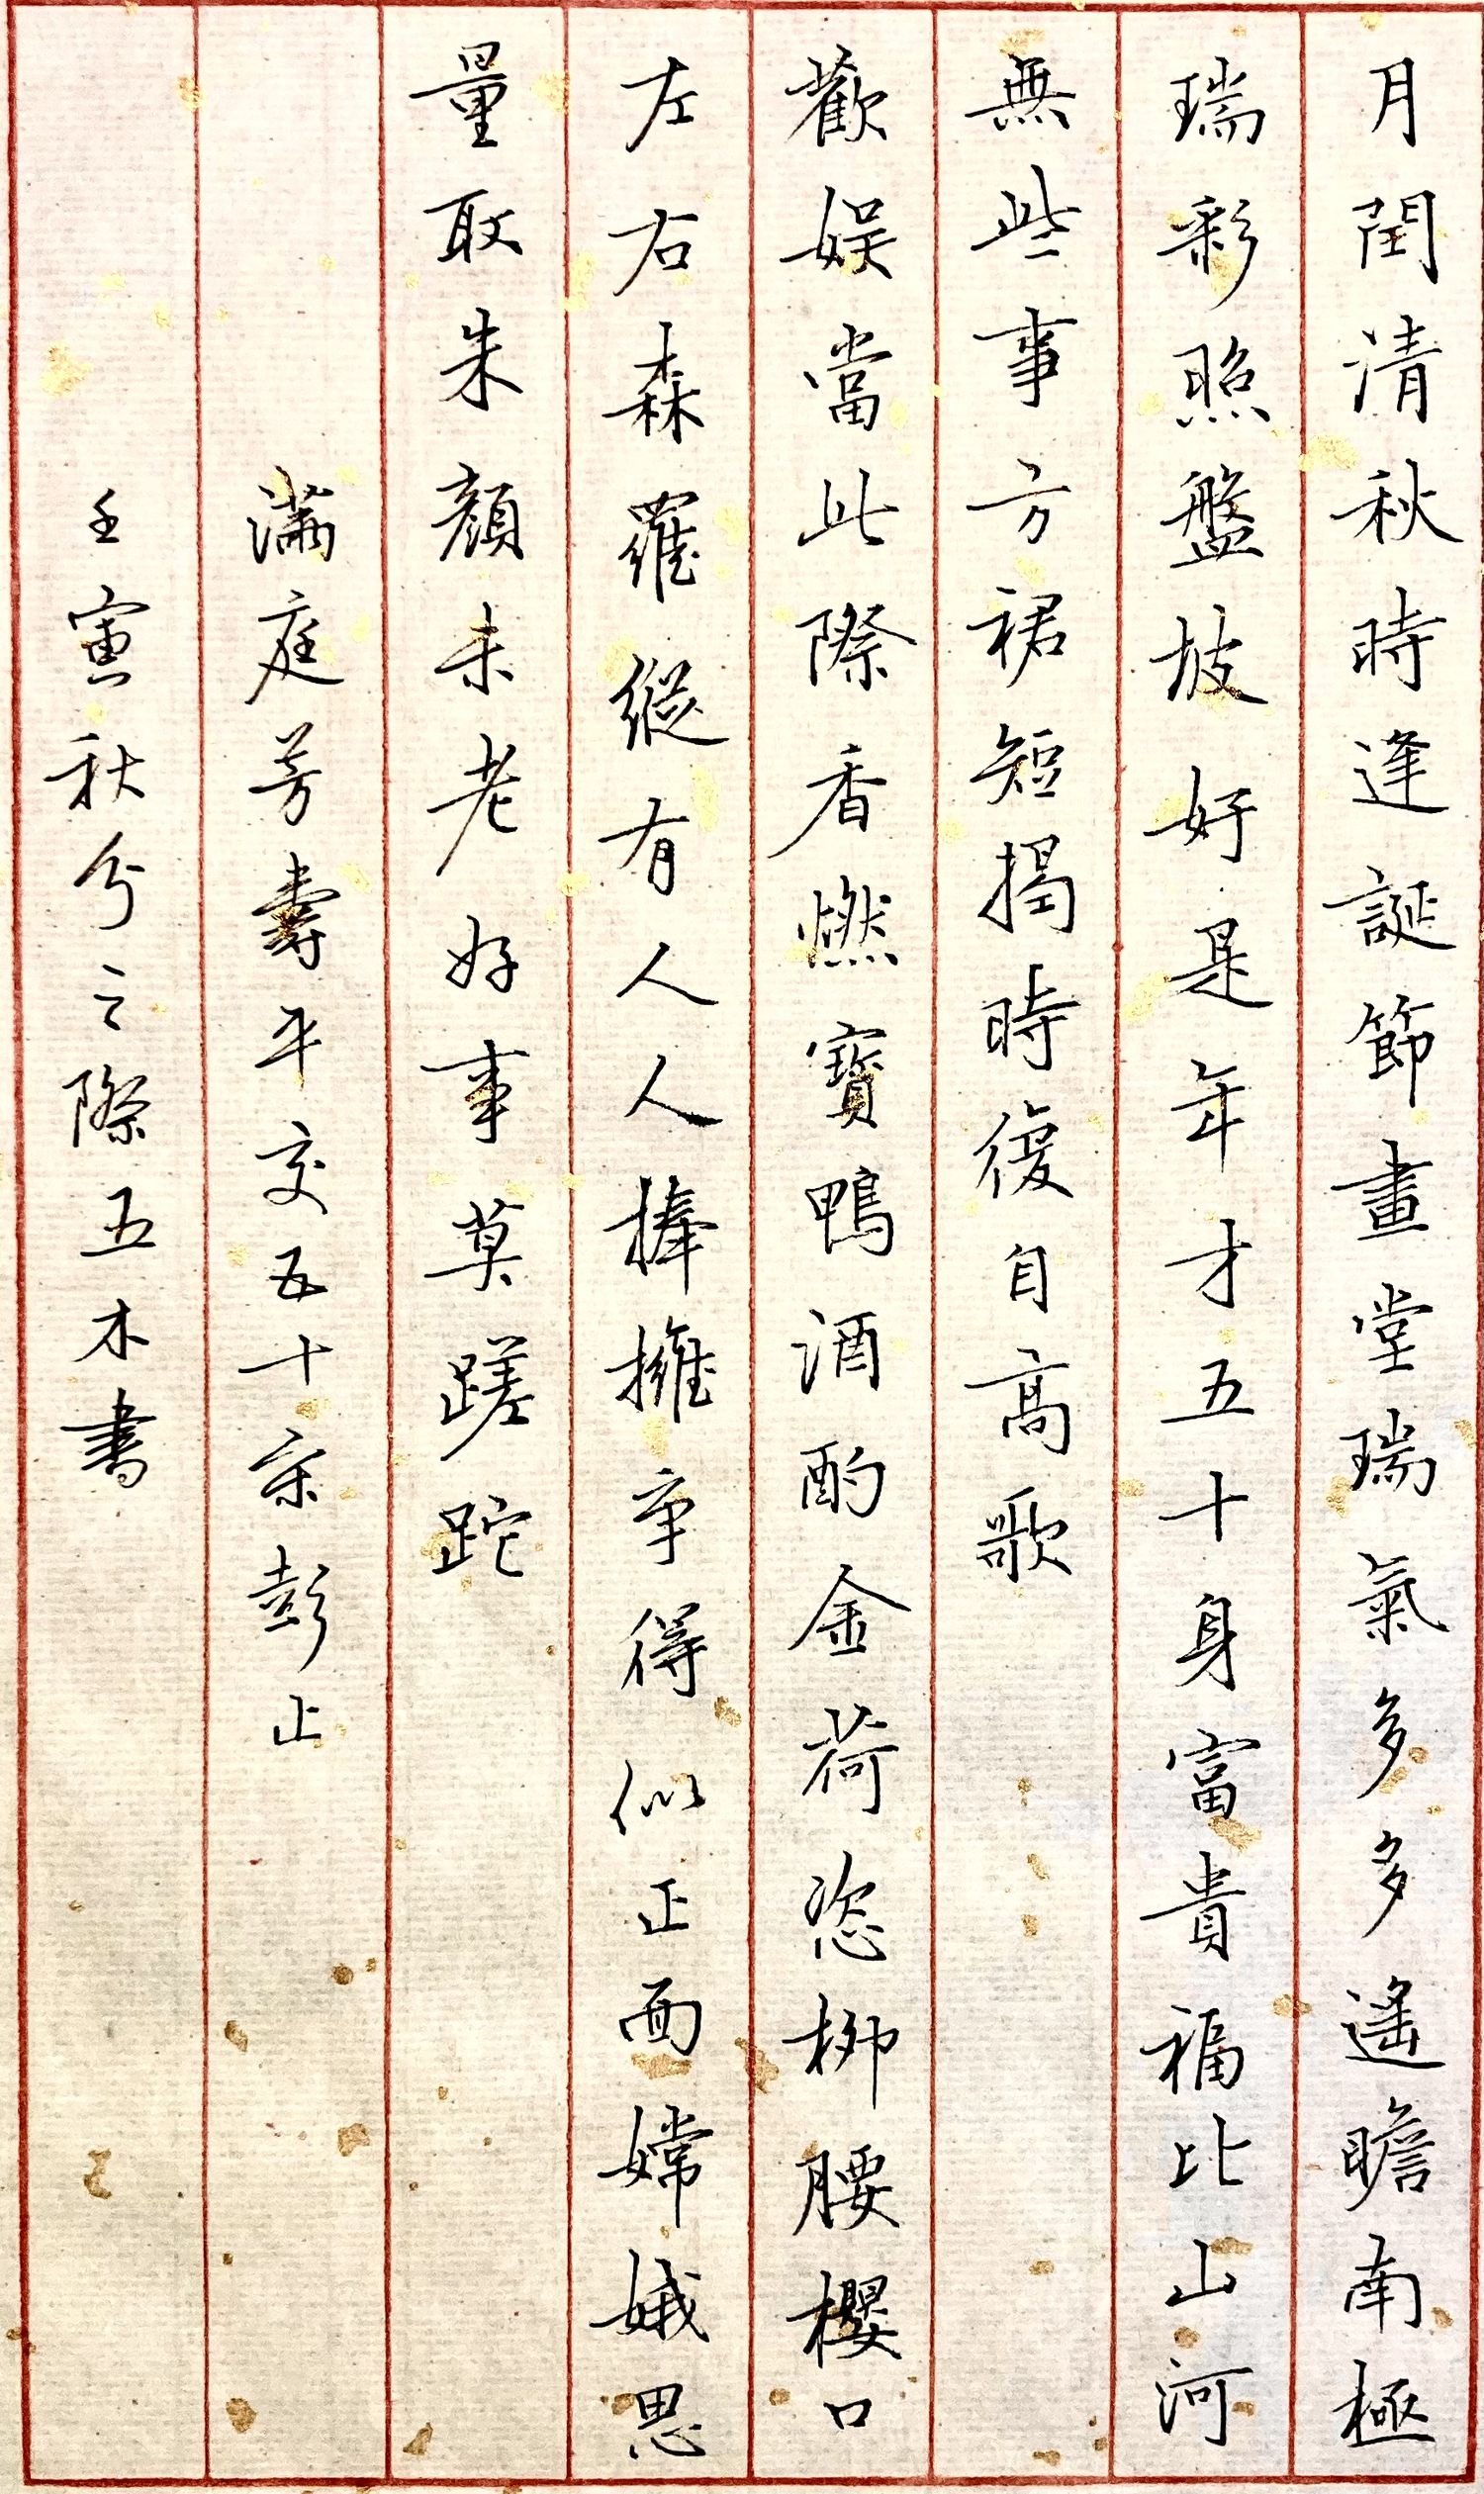 月閏清秋時逢誕節畫堂瑞氣多多遙瞻南極
瑞彩照盤坡好是年才五十身富貴福比山河
無些事方裙短揭時復自高歌
歡娱當此際香燃寶鴨酒酌金荷恣柳腰櫻口
左右森羅縱有人人捧擁爭得似正面嫦娥思
量取朱顏未老好事莫蹉跎
滿庭芳壽平交五十宋彭止
壬寅秋分之際五木書